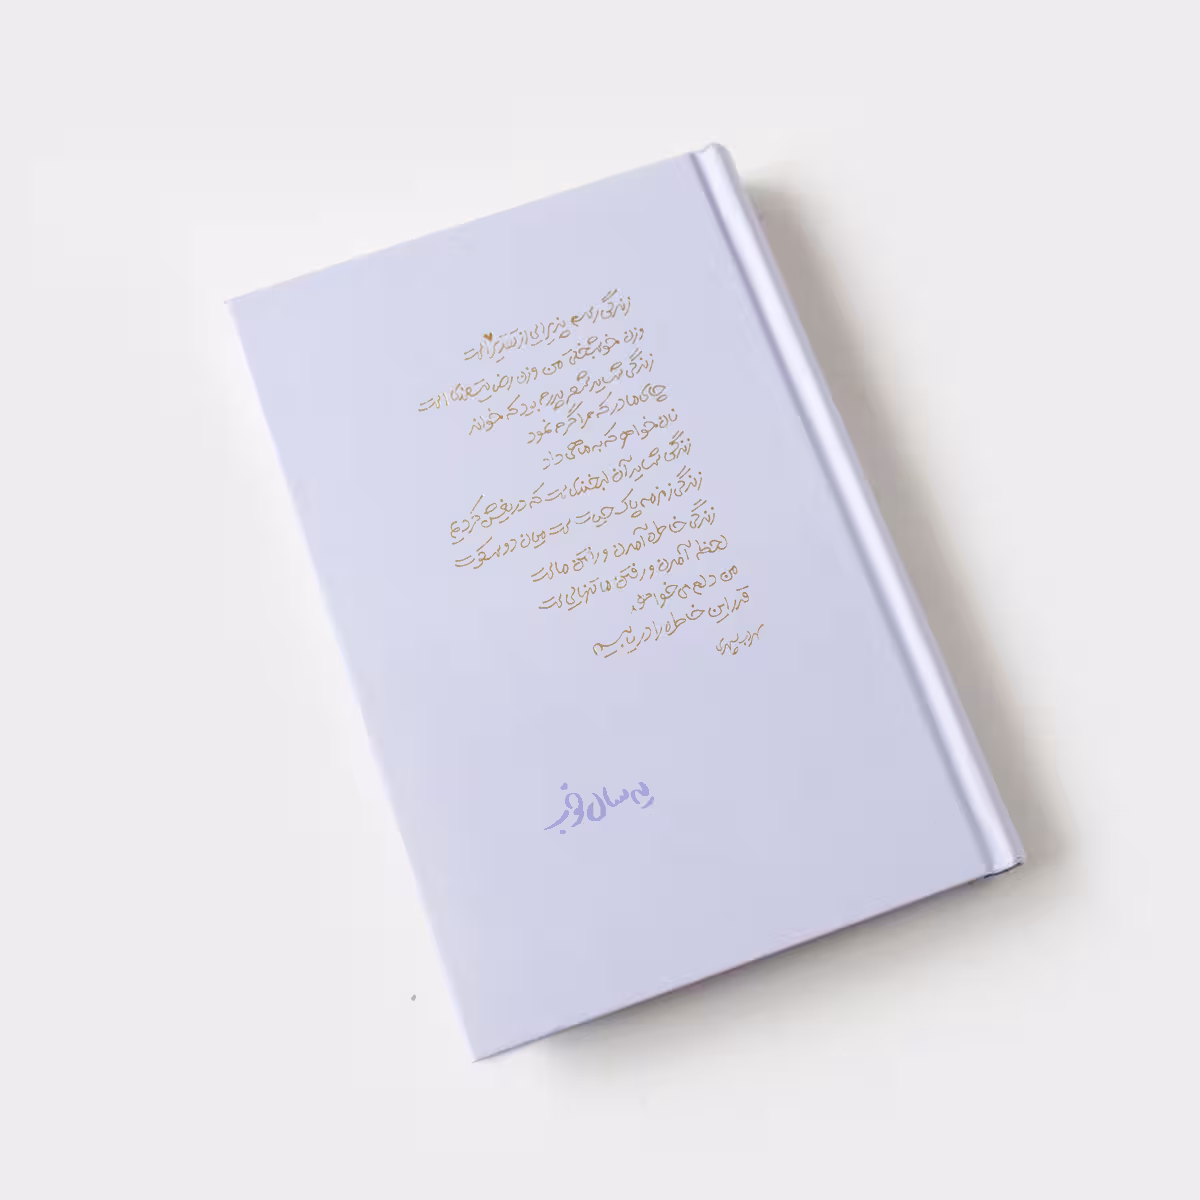 زندگی رسم پذیرایی از تقدیر است
وزن خوشبختی من وزن رضایتمندی است
زندگی شاید شعر پدرم بود که خواند
چای مادر که مرا گرم نمود
نان خواهر که به ماهی داد
زندگی شاید آن لبخندی ست که دریغش کردیم
زندگی زمزمه پاک حیات ست میان دو سکوت
زندگی خاطره آمدن و رفتن ماست
لحظه آمدن و رفتن ما تنهایی ست
من دلم می‌خواهد
قدر این خاطره را دریابیم
سهراب سپهری
یه سال خوب